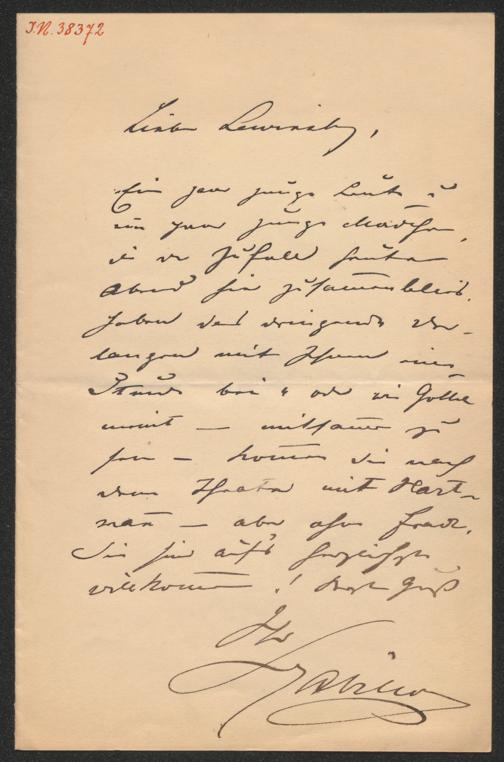 I.N. 38372
Lieber Lewinsky,
Ein paar junge Leute u
ein paar junge Mädchen,
die der Zufall heute
Abend hier zusammenblies,
haben das dringende Ver-
langen mit Ihnen eine
Stunde bei
– mitsammen zu
– kommen Sie nach
dem Theater mit Hart-
mañ – aber ohne Frack.
Sie sind aufs herzlichste
willkommen! Gruß
Ihr